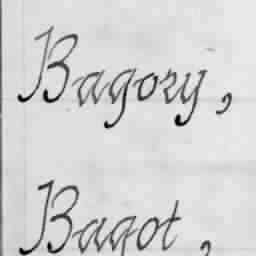 Bagory,
Bagot,